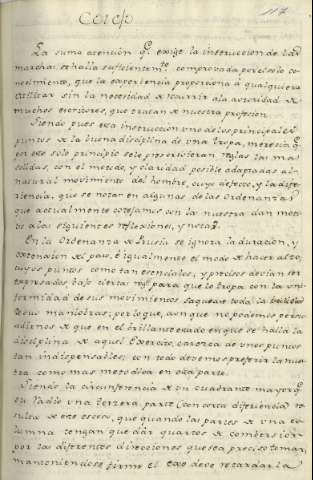 117
La suma atencion q.e exige la instruccion de la
marcha se halla suficientem.te comprovada por el solo co-
nocimiento, que la experiencia proporciona á qualquiera
utilizar sin la necesidad de recurrir ála autoridad de
muchos escritores, que tratan de nuestra profesion.
Siendo pues esta instruccion uno de los principales
puntos de la buena disciplina de una tropa, merecia q.e
en este solo principio se prescrivieran reglas las mas
solidas, con el metodo, y claridad posible adaptadas al
natural movimiento del hombre, cuyo defecto, y la dife-
rencia, que se notan en algunas de las Ordenanzas
que actualmente cotejamos con la nuestra dan moti-
vo álas siguientes reflexiones, y notas.
En la Ordenanza de Prusia se ignora la duracion, y
extension del paso, é igualmente el modo de hacer alto,
cuyos puntos como tan esenciales, y precisos devian ser
expresados, bajo cierta reg.la para que la tropa con la uni-
formidad de sus movimientos saque toda la
de sus maniobras; por lo que, aun que no podemos persu-
adirnos de que en el brillante estado en que se halla la
disciplina de aquel Exercito, carezca de unos puntos
tan indispensables; con todo devemos preferir la nues-
tra como mas metodica en esta parte.
Siendo la circunferencia de un cuadrante mayor q.e
su radio una tercera parte (con corta diferiencia) re-
sulta de este exceso, que quando las partes de una co-
lumna tengan que dár quartos de combersion
por las diferentes direcciones que sea preciso tomar,
manteniendose firme el exe deve retardar la